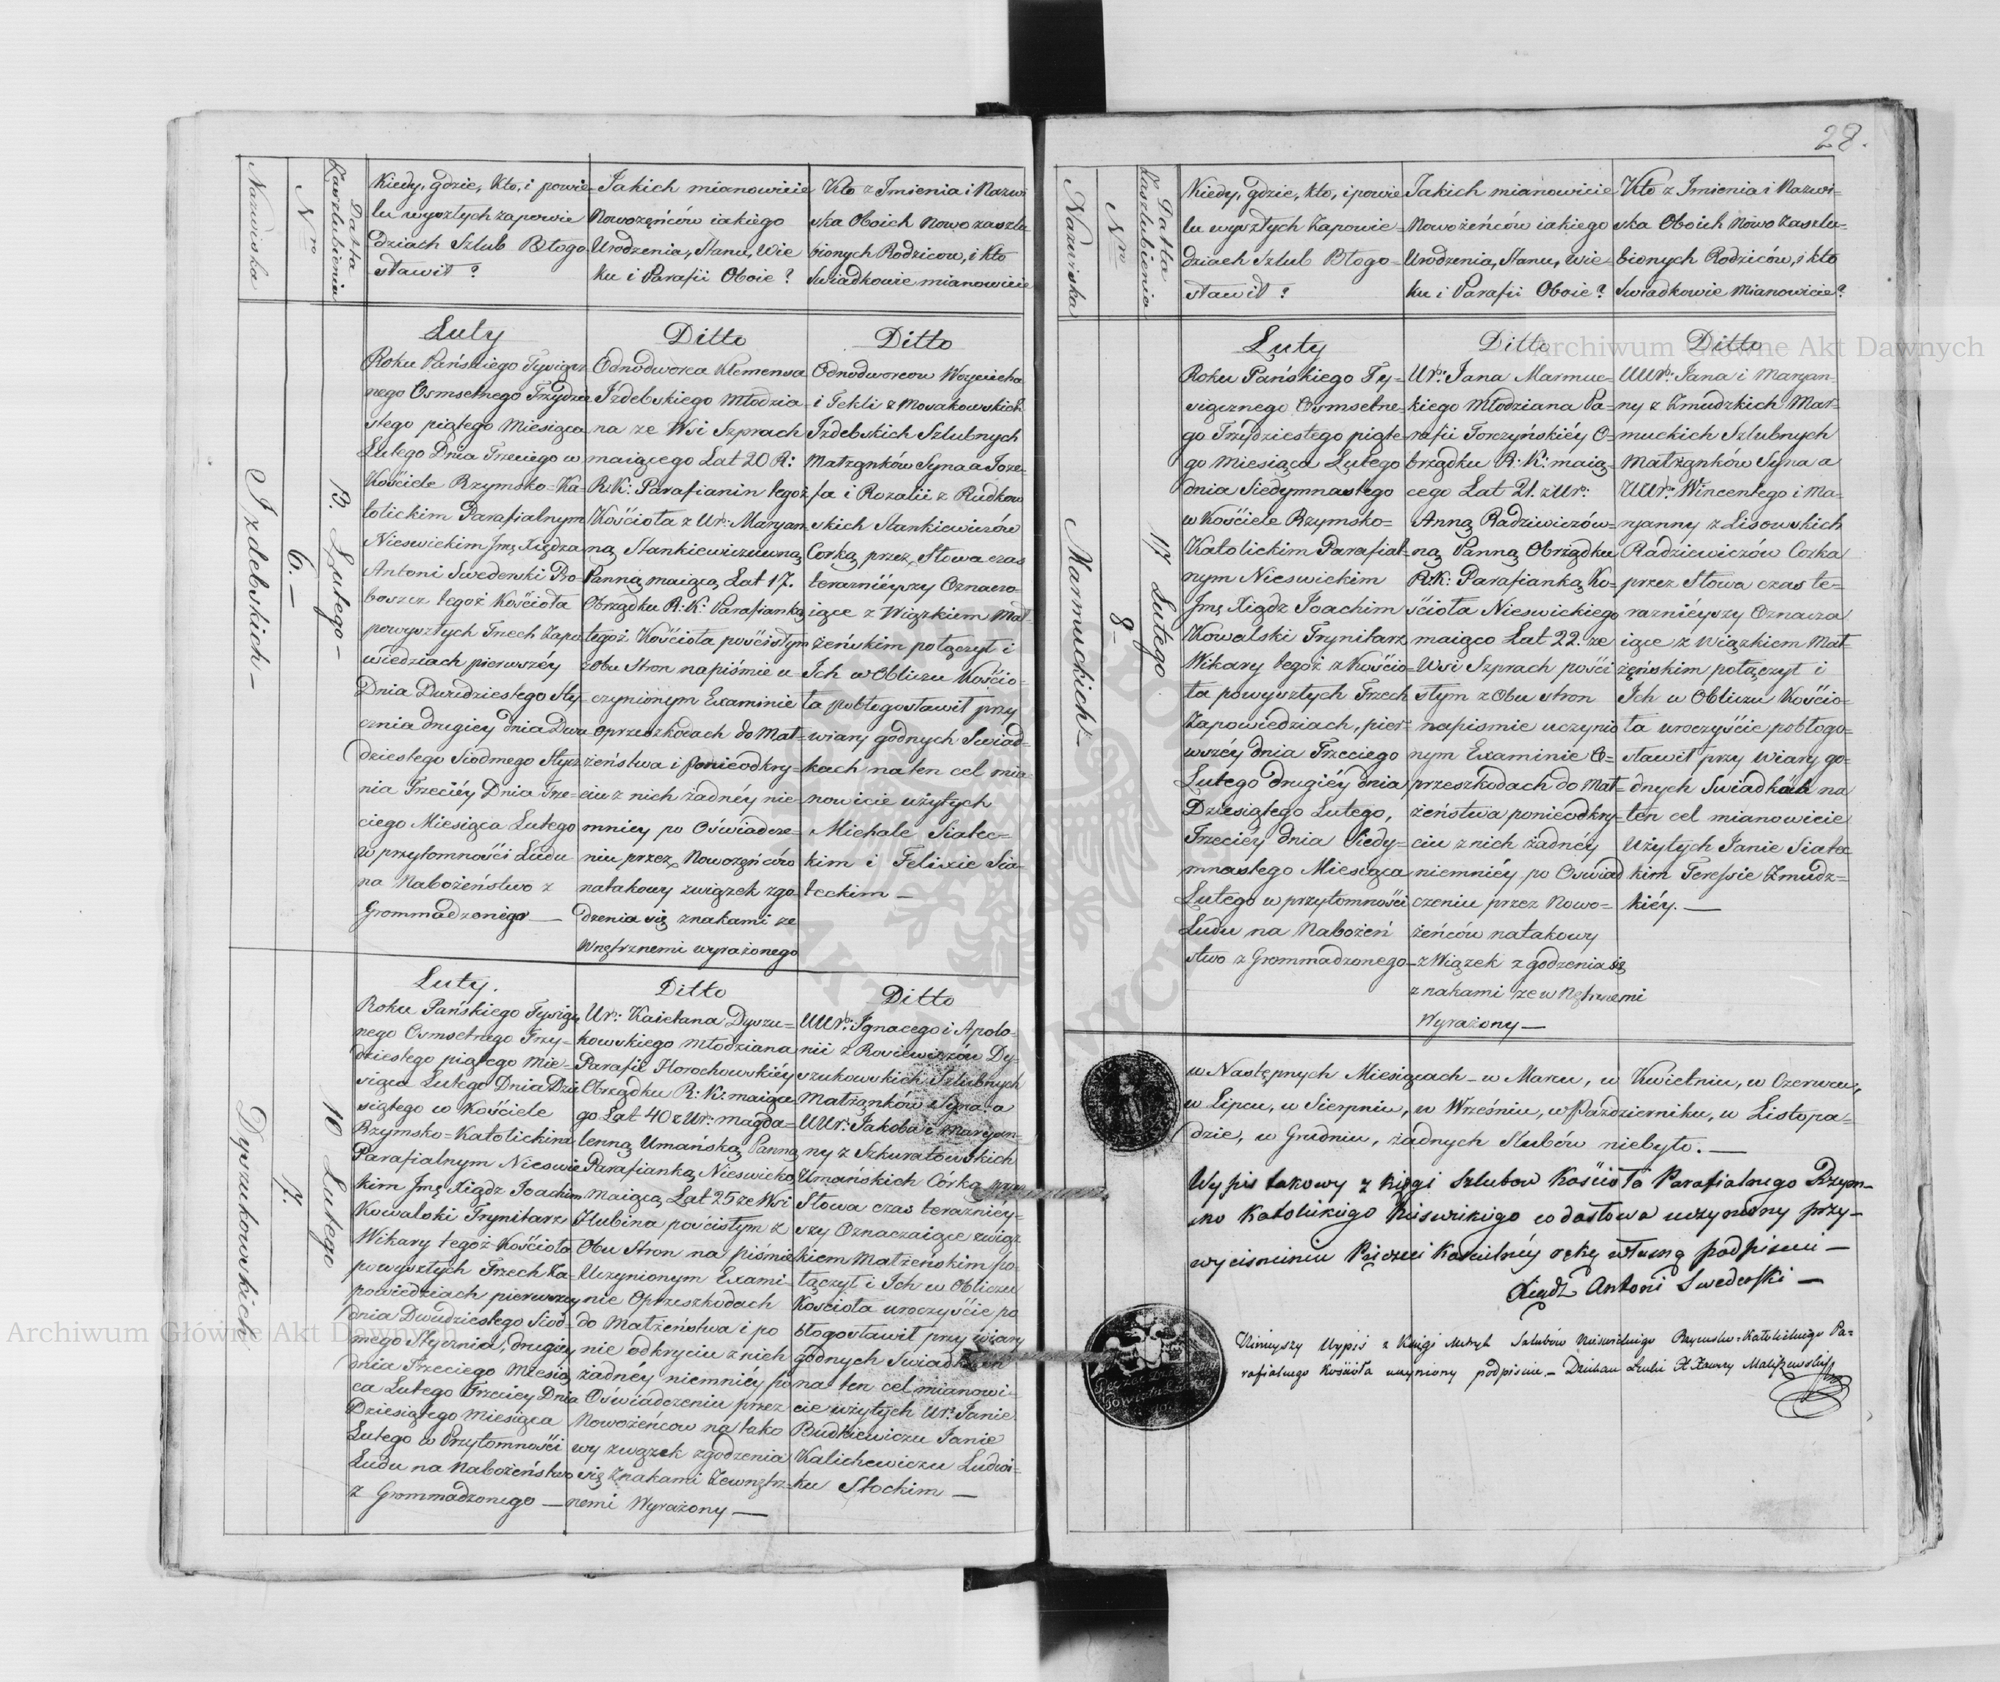 28.
Nazwiska
Nro
Datta Zaszlubienia
Kiedy, gdzie, Kto, i powie-
lu wyszłych zapowie
dziach Szlub Błogo
sławił?
Jakich mianowicie
Nowożęńców iakiego
Urodzenia, Stanu, Wie
ku i Parafii Oboie?
Kto z Imienia i Nazwi
ska Oboich Nowo zaszlu
bionych Rodzicow, i kto
Swiadkowie mianowicie
Izdebskich
6.
3. Lutego
Luty
Roku Pańskiego Tysiącz
nego Osmsetnego Trzydzie
stego piątego Miesiąca
Lutego Dnia Trzeciego w
Kościele Rzymsko-Ka-
tolickim Parafialnym
Nieswickim Jmę Xiędza
Antoni Swederski Pro-
boszcz tegoż Kościoła
powyszłych Trzech Zapo
wiedziach pierwszéy
Dnia Dwudziestego Sty-
cznia drugiey dnia Dwu
dziestego Siodmego Stycz
nia Trzeciéy Dnia Trze-
ciego Miesiąca Lutego
w przytomności Ludu
na Nabożeństwo z
Grommadzonégo
Ditto
Odnodworca Klemensa
Izdebskiego Młodzia
na ze Wsi Szprach
maiącego Lat 20 R:
R: K: Parafianin tegoż
Kościoła z Ur: Maryan
ną Stankiewiczuwną
Panną maiącą Lat 17.
Obrządku R: K: Parafianką
tegoż Kościoła pościsłym
zobu Stron napiśmie u-
czynionym Examinie
oprzeszkodach do Mał-
żeństwa i ponieodkry-
ciu z nich żadnéy nie-
mniey po Oświadcze-
niu przez Nowożęńców
natakowy związek zgo
dzenia się znakami ze
wnętrznemi wyrażonego
Ditto
Odnodworcow Woyciecha
i Tekli z Mosakowskich
Izdebskich Szlubnych
Małżąnków Syna a Joze-
fa i Rozalii z Rudkow
skich Stankiewiczów
Corką przez Słowa czas
teraznieyszy Oznacza-
iące z Wiązkiem Mał-
żeńskim połączył i
Ich w Obliczu Kościo-
ła pobłogosławił przy
wiary godnych Swiad-
kach na ten cel mia-
nowicie użytych
Michale Siałec-
kim i Felixie Sia-
łeckim
Dyszukowskich
7.
10 Lutego
Luty.
Roku Pańskiego Tysiącz
nego Osmsetnego Trzy-
dziestego piątego Mie-
siąca Lutego Dnia Dzie
siątego w Kościele
Rzymsko-Katolickim
Parafialnym Nieswic
kim Jmę Xiądz Joachim
Kowalski Trynitarz
Wikary tegoż Kościoła
powyszłych Trzech Za-
powiedziach pierwszey
dnia Dwudziestego Siod-
mego Stycznia, drugiey
dnia Trzeciego Miesią
ca Lutego Trzeciey Dnia
Dziesiątego Miesiąca
Lutego w Przytomności
Ludu na Nabożeństwo
z Grommadzonego
Ditto
Ur: Kaietana Dyszu-
kowskiego Młodziana
Parafii Horochowskiéy
Obrządku R: K: maiące
go Lat 40 z Ur: Magda-
lenną Umańską Panną
Parafianką Nieswicką
maiącą Lat 25 ze Wsi
Hubina pościsłym z
Obu Stron na piśmie
Uczynionym Exami-
nie Oprzeszkodach
do Małżeństwa i po
nie odkryciu z nich
żadnéy niemniey po
Oświadczeniu przez
Nowożeńcow na tako
wy związek zgodzenia
się Znakami Zewnętrz-
nemi Wyrażony
Ditto
UUr: Ignacego i Apolo-
nii z Rosiewiczów Dy-
szukowskich Szlubnych
Małżąnków Syna a
UUr: Jakoba i Maryan-
ny z Szkuratowskich
Umańskich Córką przez
Słowa czas terazniey-
szy Oznaczaiące związ
kiem Małżeńskim po-
łączył i Ich w Obliczu
Kościoła uroczyście po
błogosławił przy wiary
godnych Swiadkach
na ten cel mianowi-
cie użytych Ur: Janie
Budkiewiczu Janie
Kalichewiczu Ludwi-
ku Słockim
Nazwiska
Nro
Datta Zaszlubienia
Kiedy, gdzie, kto, i powie
lu wyszłych Zapowie-
dziach Szlub Błogo-
sławił?
Jakich mianowicie
Nowożeńców iakiego
Urodzenia, Stanu, Wie-
ku i Parafii Oboie?
Kto z Imienia i Nazwi-
ska Oboich Nowo Zaszlu-
bionych Rodziców, i kto
Swiadkowie Mianowicie?
Marmuckich
8
17 Lutego
Luty
Roku Pańskiego Ty-
siącznego Osmsetne-
go Trzydziestego piąte-
go Miesiąca Lutego
dnia Siedymnastego
w Kościele Rzymsko-
Katolickim Parafial-
nym Nieswickim
Jmę Xiądz Joachim
Kowalski Trynitarz
Wikary tegoż z Kościo-
ła powyszłych Trzech
Zapowiedziach, pier-
wszéy dnia Trzeciego
Lutego drugiéy dnia
Dziesiątego Lutego,
Trzeciéy dnia Siedy-
mnastego Miesiąca
Lutego w przytomności
Ludu na Nabożeń
stwo z Grommadzonego
Ditto
Ur: Jana Marmuc-
kiego Młodziana Pa-
rafii Torczyńskiéy O-
brządku R: K: maią-
cego Lat 21. z Ur:
Anną Radziewiczów-
ną Panną Obrządku
R: K: Parafianką Ko-
ścioła Nieswickiego
maiąco Lat 22. ze
Wsi Szprach pości
słym z Obu stron
napismie uczynio
nym Examinie O-
przeszkodach do Mał-
żeństwa ponieodkry-
ciu z nich żadnéy
niemniéy po Oswiad
czeniu przez Nowo-
żeńców natakowy
z Wiązek zgodzenia się
znakami zewnętrznemi
Wyrażony
Ditto
UUr: Jana i Maryan-
ny z Zmudzkich Mar-
muckich Szlubnych
Małżąnków Syna a
UUr: Wincentego i Ma-
ryanny z Lisowskich
Radziewiczów Corka
przez Słowa czas te-
raznieyszy Oznacza
iące z wiązkiem Mał-
żęńskim połączył i
Ich w Obliczu Kościo-
ła uroczyście pobłogo-
sławił przy Wiary go-
dnych Swiadkach na
ten cel mianowicie
Użytych Janie Siałec
kim Teressie Zmudz-
kiéy.
w Następnych Miesiącach w Marcu, w Kwietniu, w Czerwcu,
w Lipcu, w Sierpniu, w Wrześniu, w Październiku, w Listopa-
dzie, w Grudniu, żadnych Slubów niebyło.
Wypis takowy z księgi Szlubow Kościoła Parafialnego Rzym-
sko Katolickiego Nieswickiego co dosłowa uczyniony przy-
wycisnieniu Pieczęci Kościelnéy ręką własną podpisuię
Xiądz Antoni Swederski
Ninieyszy Wypis z Księgi Metryk Szlubów Nieswickiego Rzymsko-Katolickiego Pa-
rafialnego Kościoła uczyniony podpisuię Dziekan Łucki X. Xawery Maliszewski
Archiwum Główne Akt Dawnych
Archiwum Główne Akt Dawnych